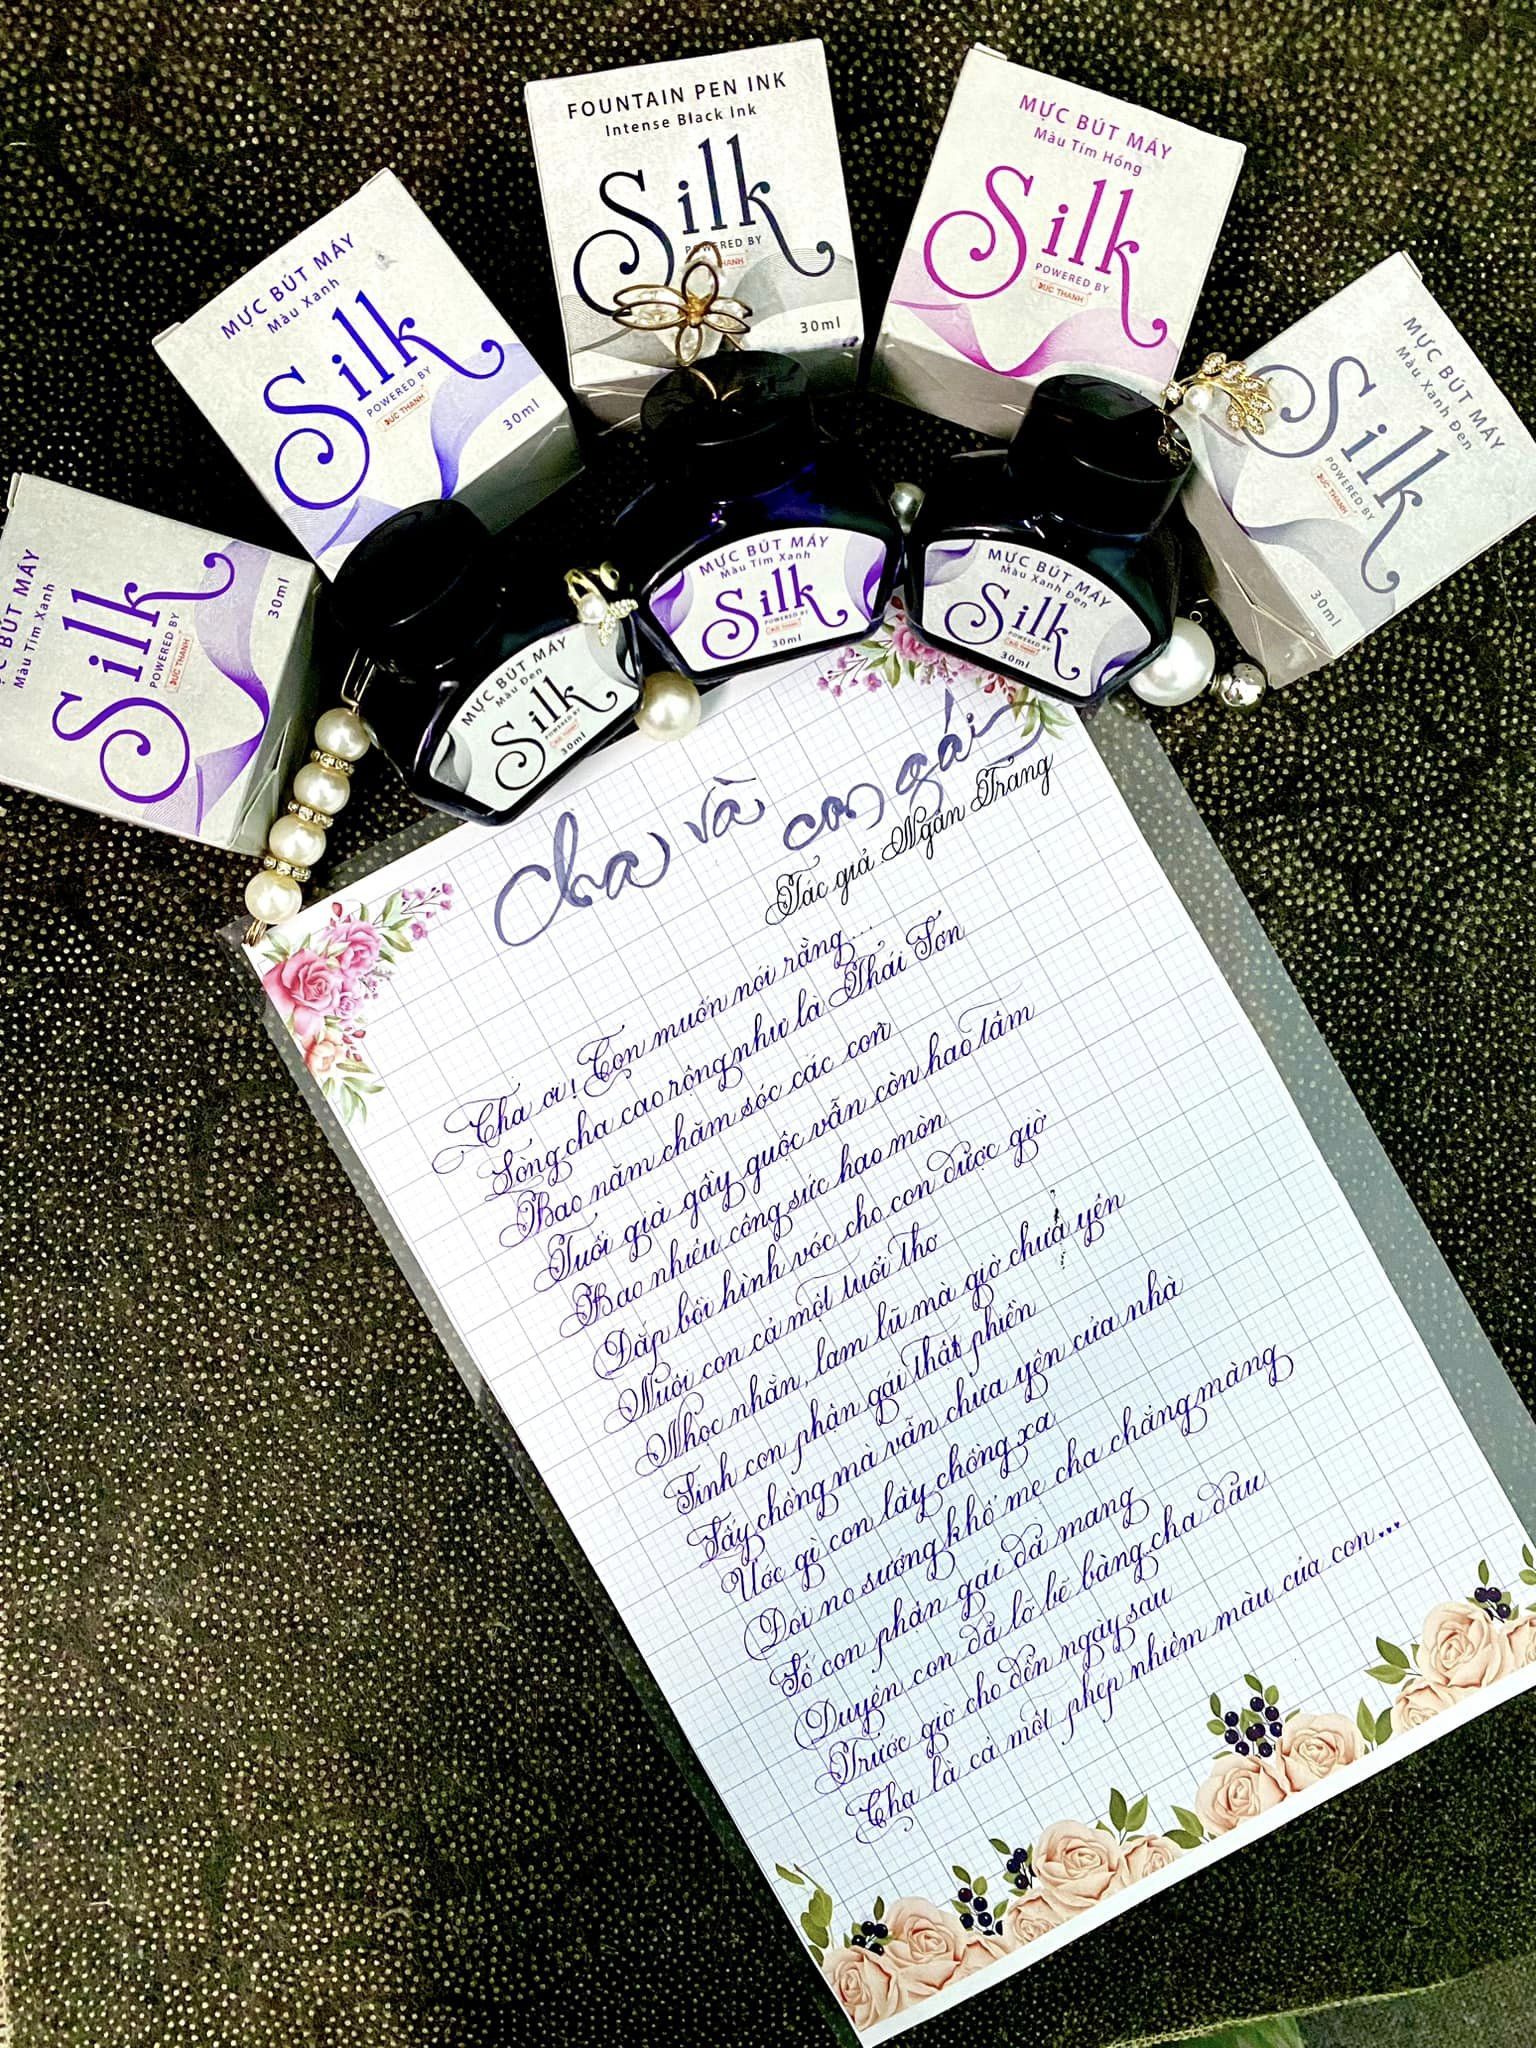 FOUNTAIN PEN INK
Intense Black Ink
Silk
POWERED BY
THANH
30ml
MỰC BÚT MÁY
Màu Tím Hồng
Silk
POWERED BY
ĐỨC THANH
MỰC BÚT MÁY
Màu Xanh
Silk
POWERED BY
ĐỨC THANH
30ml
MỰC BÚT MÁY
Màu Xanh Đen
Silk
POWERED BY
ĐỨC THANH
30ml
C BÚT MÁY
Màu Tím Xanh
Silk
POWERED BY
ĐỨC THANH
30ml
MỰC BÚT MÁY
Màu Đen
Silk
POWERED BY
30ml
MỰC BÚT MÁY
Màu Tím Xanh
Silk
POWERED BY
ĐỨC THANH
30ml
MỰC BÚT MÁY
Màu Xanh Đen
Silk
POWERED BY
ĐỨC THANH
30ml
Cha và con gái
Tác giả Ngân Trang
Cha ơi! Con muốn nói rằng...
Lòng cha cao rộng như là Thái Sơn
Bao năm chăm sóc các con
Tuổi già gầy guộc vẫn còn hao tâm
Bao nhiêu công sức hao mòn
Đắp bồi hình vóc cho con được giờ
Nuôi con cả một tuổi thơ
Nhọc nhằn, lam lũ mà giờ chưa yên
Sinh con phận gái thật phiền
Lấy chồng mà vẫn chưa yên cửa nhà
Ước gì con lấy chồng xa
Đói no sướng khổ mẹ cha chẳng màng
Số con phận gái đã mang
Duyên con đã lỡ bẽ bàng cha đau
Trước giờ cho đến ngày sau
Cha là cả một phép nhiệm màu của con...